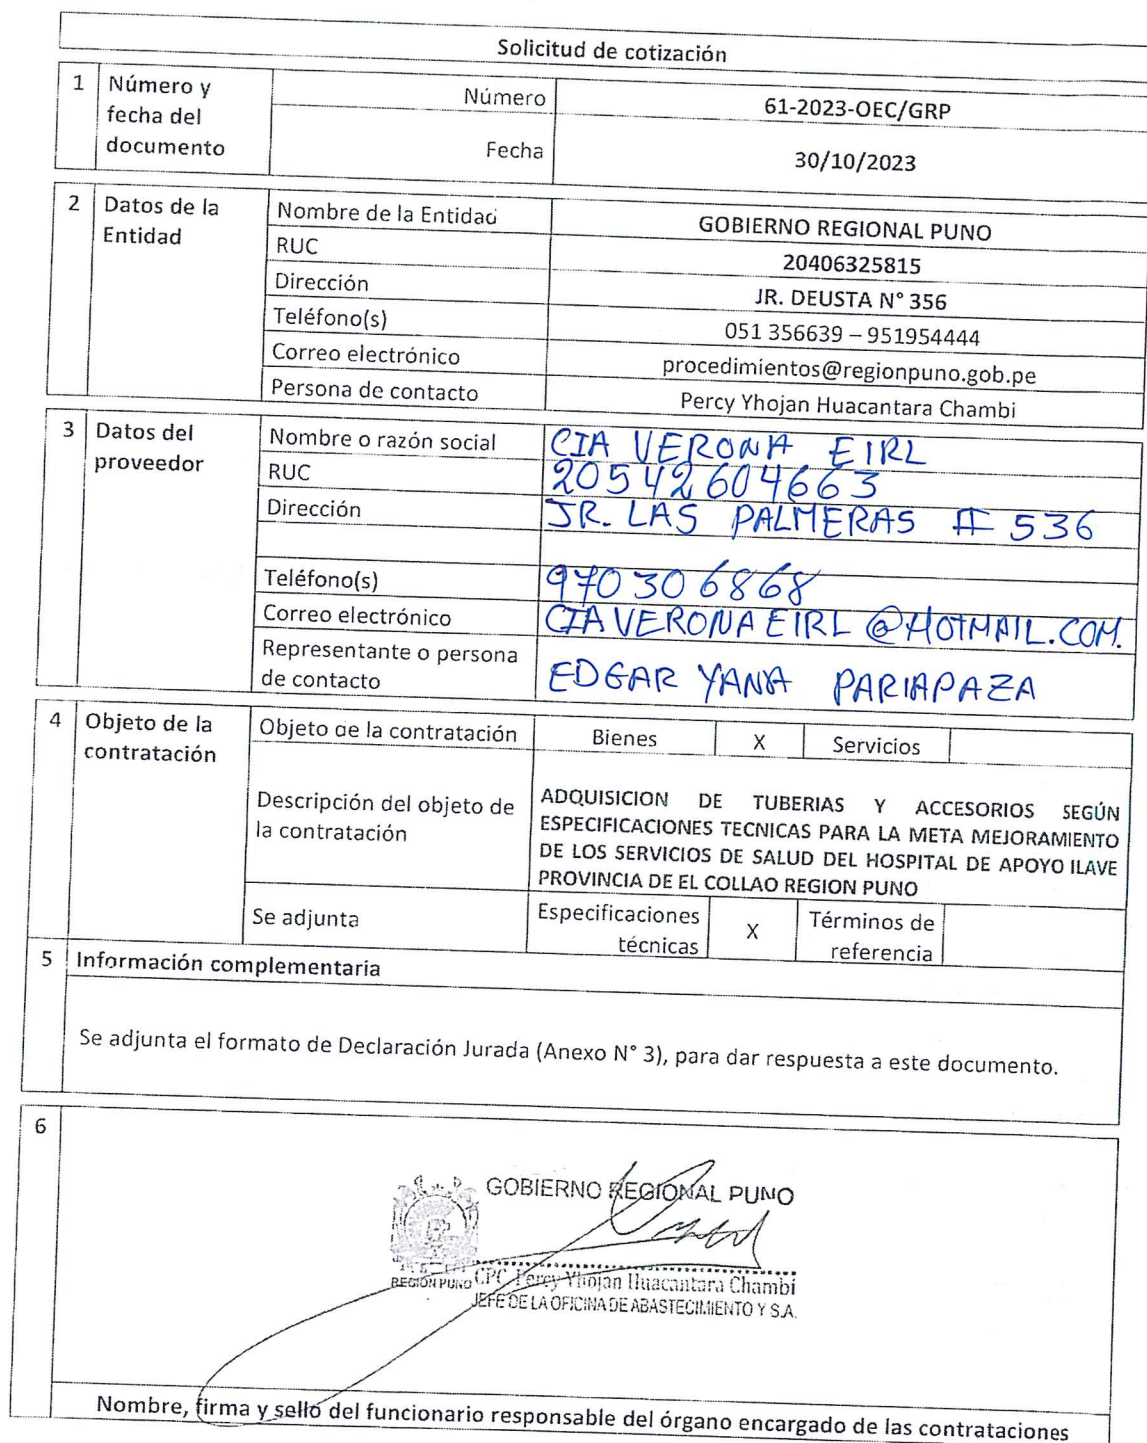 Solicitud de cotización
1 Número y fecha del documento
Número 61-2023-OEC/GRP
Fecha 30/10/2023
2 Datos de la Entidad
Nombre de la Entidad GOBIERNO REGIONAL PUNO
RUC 20406325815
Dirección JR. DEUSTA N° 356
Teléfono(s) 051 356639 – 951954444
Correo electrónico procedimientos@regionpuno.gob.pe
Persona de contacto Percy Yhojan Huacantara Chambi
3 Datos del proveedor
Nombre o razón social CIA VERONA EIRL
RUC 20542604663
Dirección JR. LAS PALMERAS # 536
Teléfono(s) 970306868
Correo electrónico CIAVERONAEIRL@HOTMAIL.COM.
Representante o persona de contacto EDGAR YANA PARIAPAZA
4 Objeto de la contratación
Objeto de la contratación Bienes X Servicios
Descripción del objeto de la contratación
ADQUISICION DE TUBERIAS Y ACCESORIOS SEGÚN
ESPECIFICACIONES TECNICAS PARA LA META MEJORAMIENTO
DE LOS SERVICIOS DE SALUD DEL HOSPITAL DE APOYO ILAVE
PROVINCIA DE EL COLLAO REGION PUNO
Se adjunta Especificaciones técnicas X Términos de referencia
5 Información complementaria
Se adjunta el formato de Declaración Jurada (Anexo N° 3), para dar respuesta a este documento.
6
GOBIERNO REGIONAL PUNO
REGIÓN PUNO
CPC. Percy Yhojan Huacantara Chambi
JEFE DE LA OFICINA DE ABASTECIMIENTO Y S.A.
Nombre, firma y sello del funcionario responsable del órgano encargado de las contrataciones